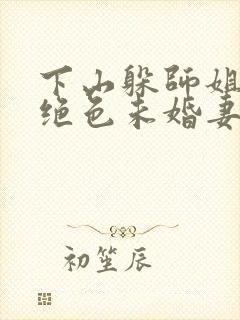 下山躲师姐
绝色未婚妻
初笙辰